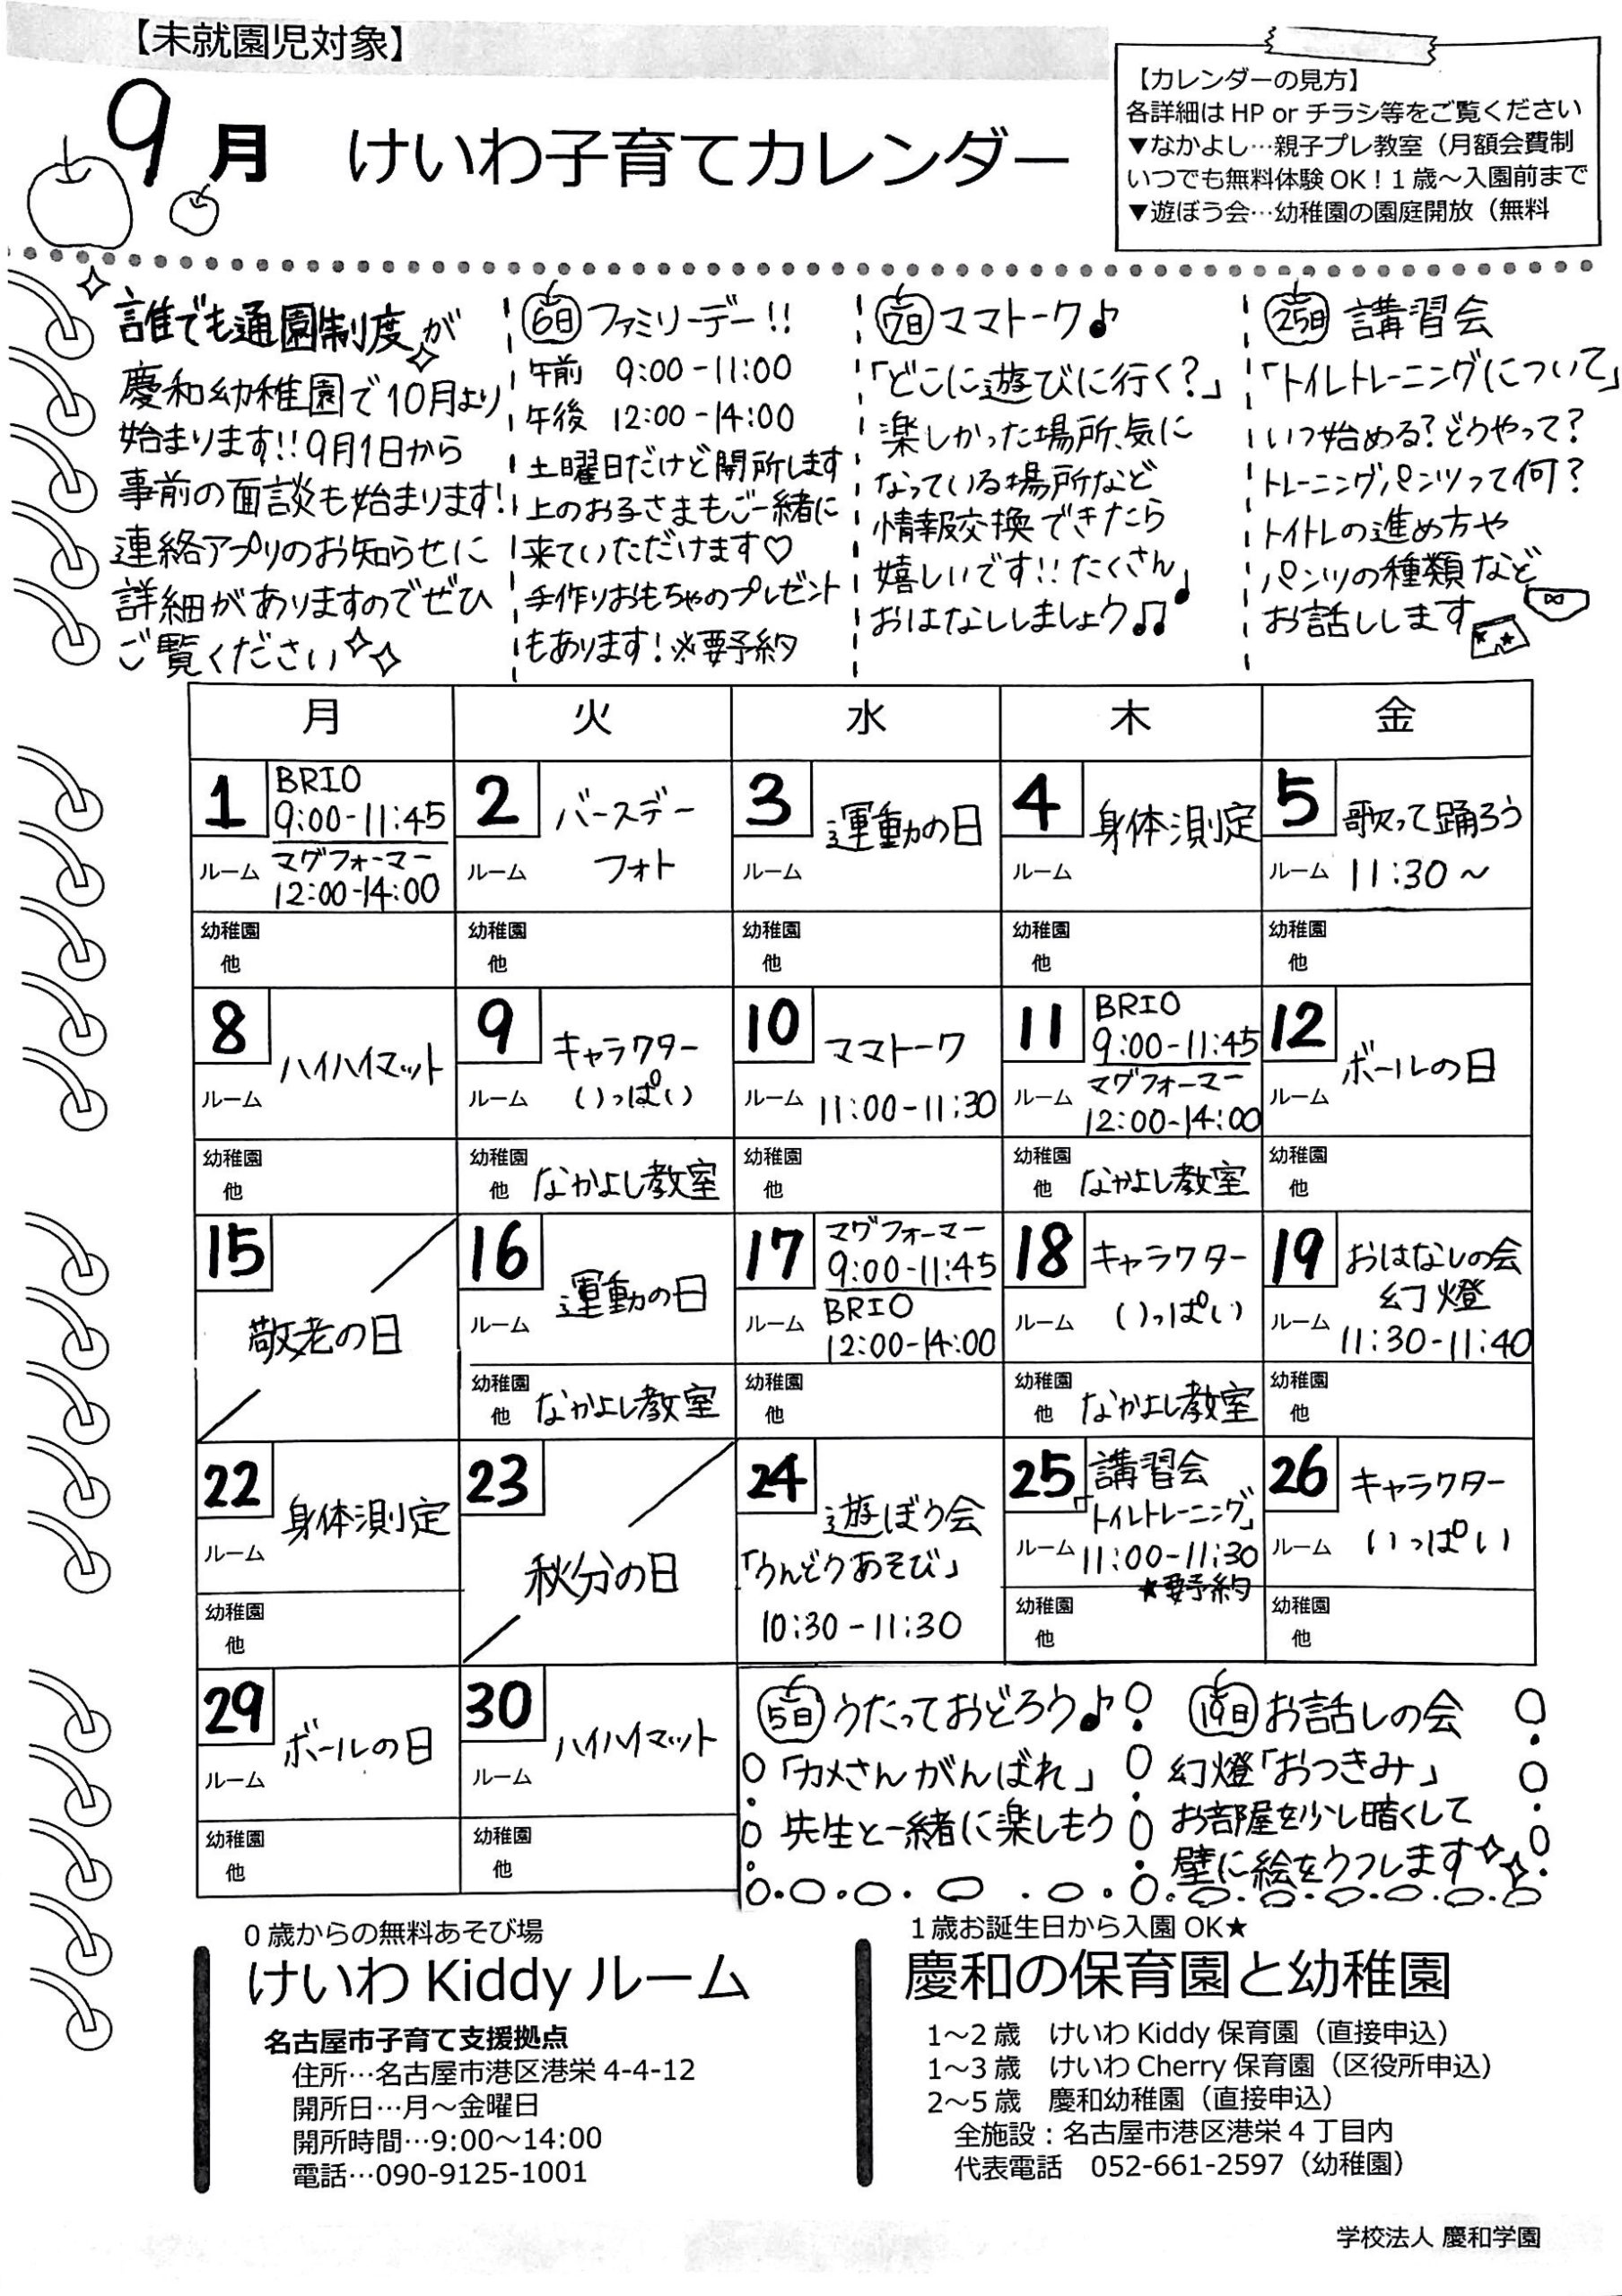 【未就園児対象】
9月 けいわ子育てカレンダー
【カレンダーの見方】
各詳細は HP or チラシ等をご覧ください
▼なかよし…親子プレ教室（月額会費制
いつでも無料体験 OK！1 歳～入園前まで
▼遊ぼう会…幼稚園の園庭開放（無料
誰でも通園制度が
慶和幼稚園で10月より
始まります!!9月1日から
事前の面談も始まります!
連絡アプリのお知らせに
詳細がありますのでぜひ
ご覧ください
6日 ファミリーデー!!
午前 9:00-11:00
午後 12:00-14:00
土曜日だけど開所します
上のお子さまもご一緒に
来ていただけます♡
手作りおもちゃのプレゼント
もあります!※要予約
7日 ママトーク♪
「どこに遊びに行く?」
楽しかった場所、気に
なっている場所など
情報交換できたら
嬉しいです!!たくさん
おはなししましょう♫
25日 講習会
「トイレトレーニングについて」
いつ始める?どうやって?
トレーニングパンツって何?
トイトレの進め方や
パンツの種類など
お話しします
月 火 水 木 金
1 BRIO
9:00-11:45
ルーム マグフォーマー
12:00-14:00
幼稚園
他
2 バースデー
ルーム フォト
幼稚園
他
3 運動の日
ルーム
幼稚園
他
4 身体測定
ルーム
幼稚園
他
5 歌って踊ろう
ルーム 11:30～
幼稚園
他
8 ハイハイマット
ルーム
幼稚園
他
9 キャラクター
ルーム いっぱい
幼稚園
他 なかよし教室
10 ママトーク
ルーム 11:00-11:30
幼稚園
他
11 BRIO
9:00-11:45
ルーム マグフォーマー
12:00-14:00
幼稚園
他 なかよし教室
12 ボールの日
ルーム
幼稚園
他
15
敬老の日
16 運動の日
ルーム
幼稚園
他 なかよし教室
17 マグフォーマー
9:00-11:45
ルーム BRIO
12:00-14:00
幼稚園
他
18 キャラクター
ルーム いっぱい
幼稚園
他 なかよし教室
19 おはなしの会
幻燈
ルーム 11:30-11:40
幼稚園
他
22 身体測定
ルーム
幼稚園
他
23
秋分の日
24 遊ぼう会
「うんどうあそび」
10:30-11:30
25 講習会
「トイレトレーニング」
ルーム 11:00-11:30
★要予約
幼稚園
他
26 キャラクター
ルーム いっぱい
幼稚園
他
29 ボールの日
ルーム
幼稚園
他
30 ハイハイマット
ルーム
幼稚園
他
5日 うたっておどろう♪
「カメさんがんばれ」
先生と一緒に楽しもう
19日 お話しの会
幻燈「おつきみ」
お部屋を少し暗くして
壁に絵をウフします
0 歳からの無料あそび場
けいわ Kiddy ルーム
名古屋市子育て支援拠点
住所…名古屋市港区港栄 4-4-12
開所日…月～金曜日
開所時間…9:00～14:00
電話…090-9125-1001
1 歳お誕生日から入園 OK★
慶和の保育園と幼稚園
1～2 歳 けいわ Kiddy 保育園（直接申込）
1～3 歳 けいわ Cherry 保育園（区役所申込）
2～5 歳 慶和幼稚園（直接申込）
全施設：名古屋市港区港栄 4 丁目内
代表電話 052-661-2597（幼稚園）
学校法人 慶和学園